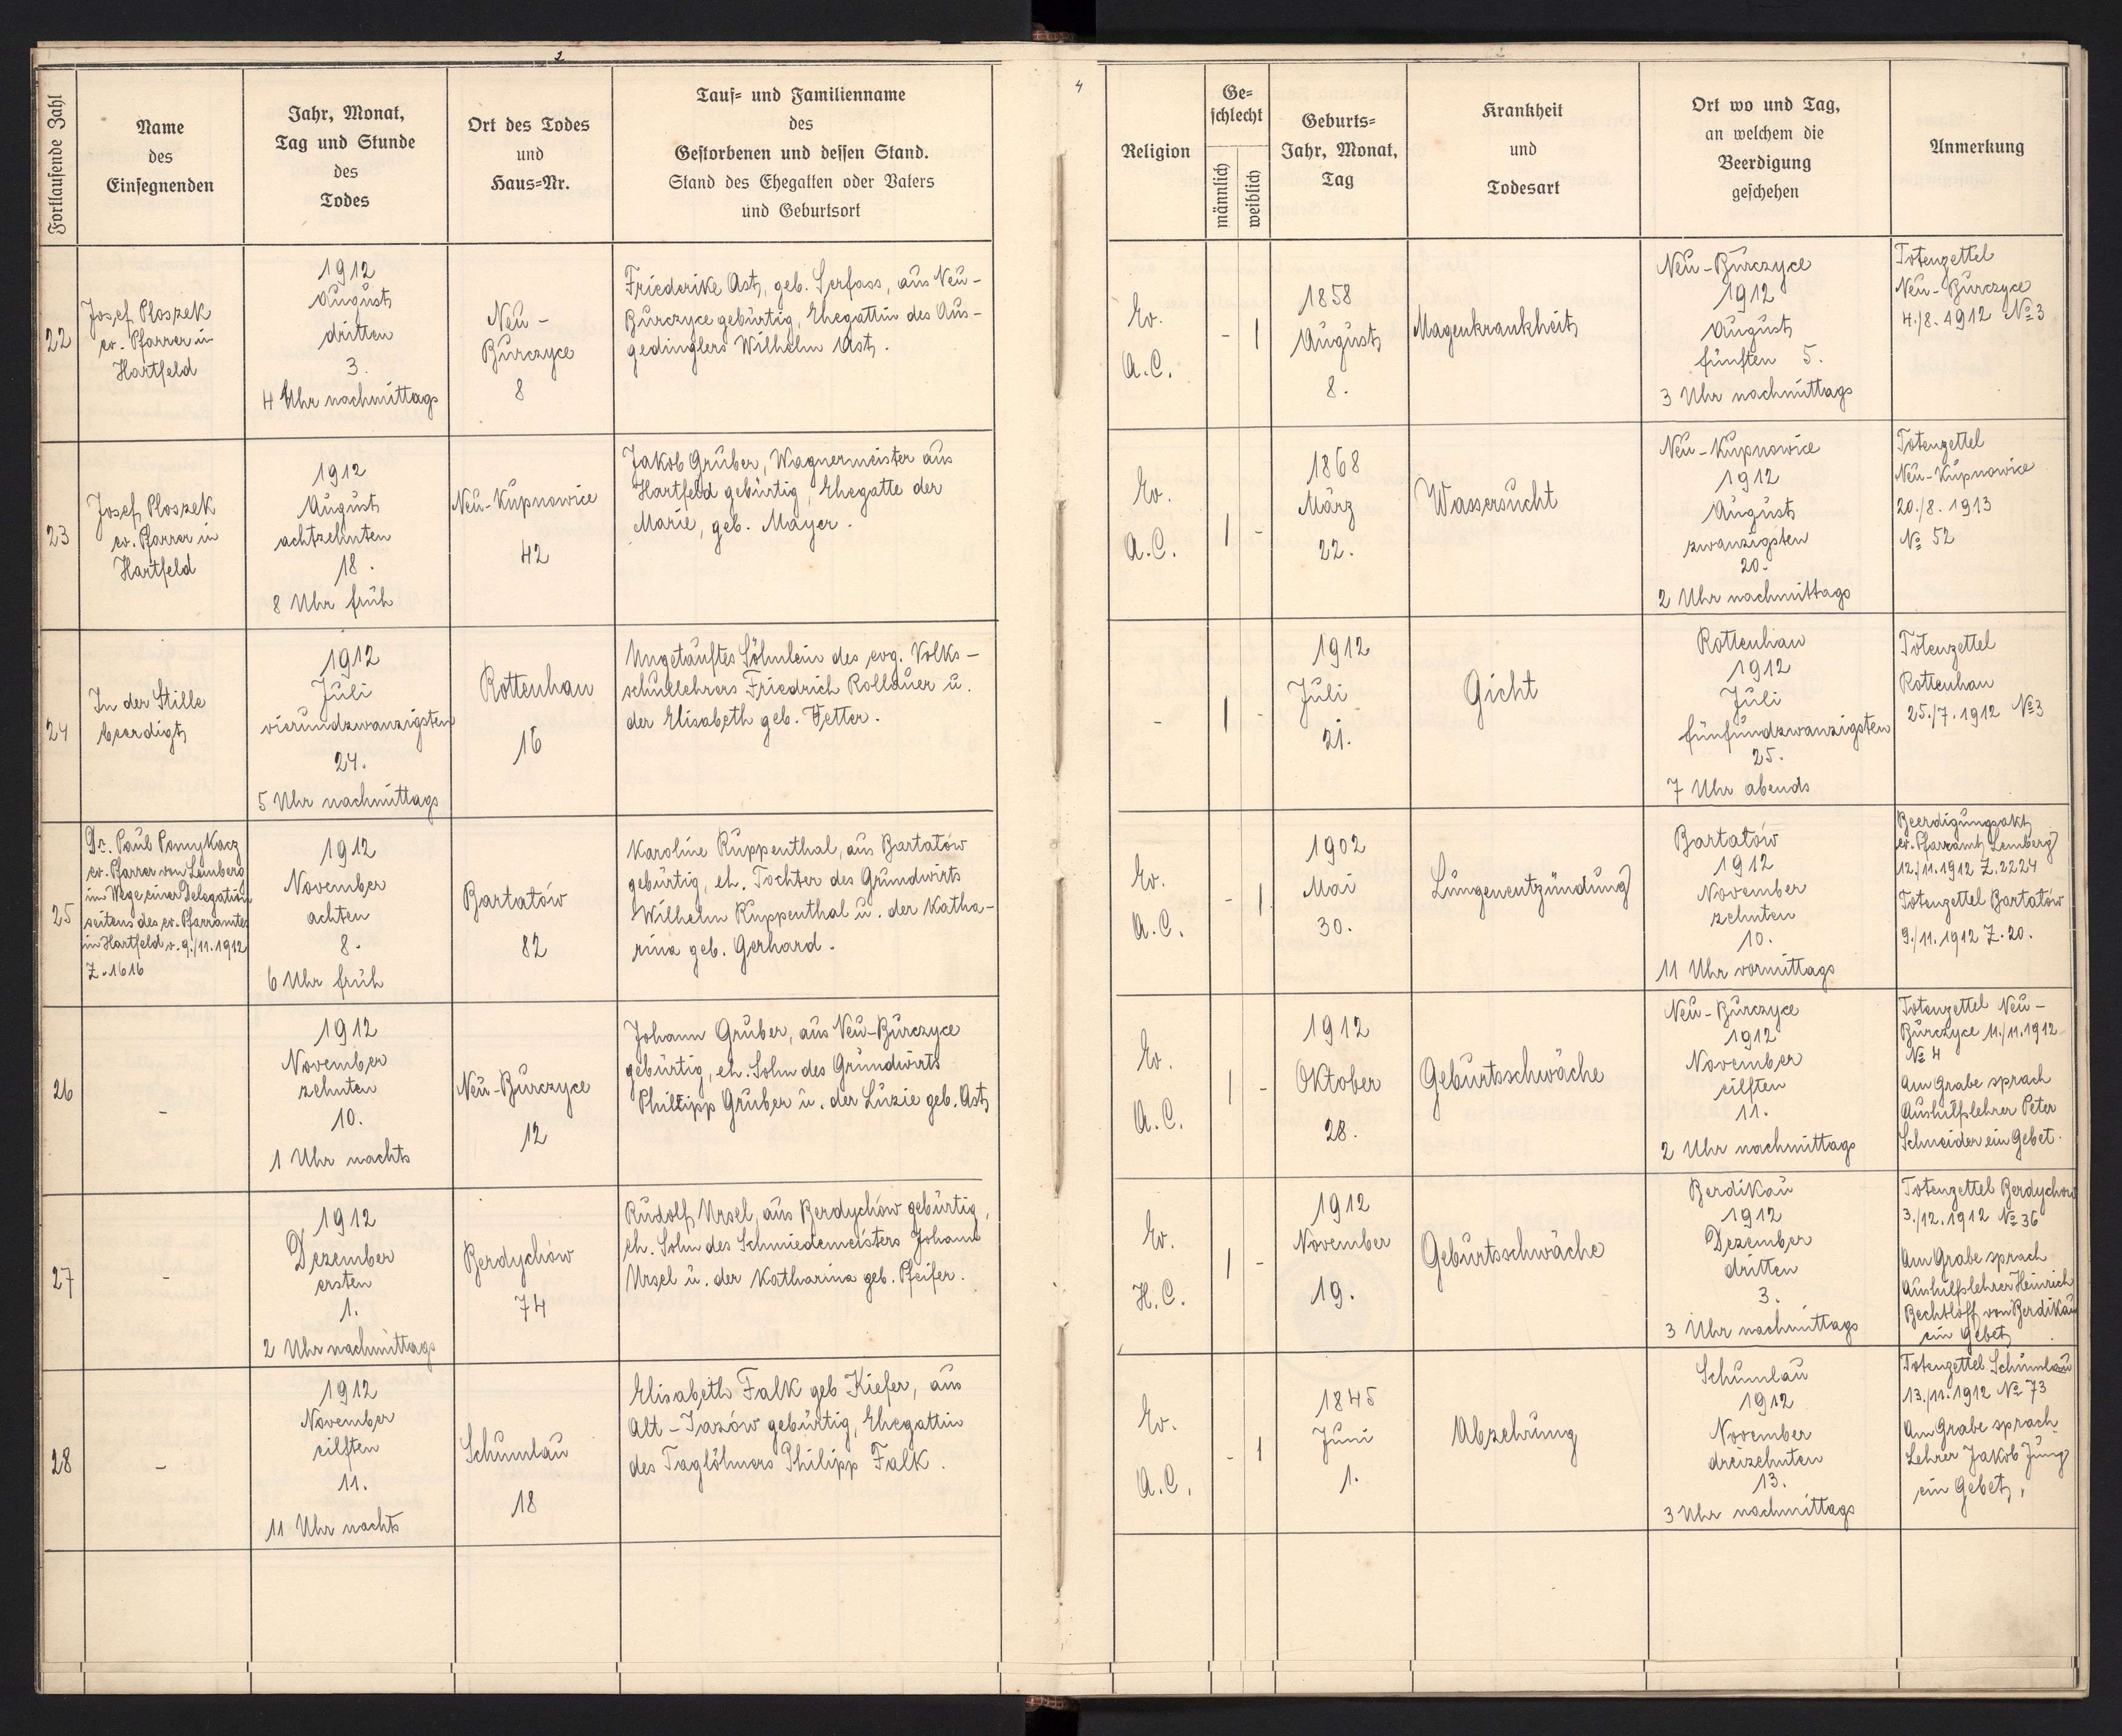 3
4
Fortlaufende Zahl
Name
des
Einsegnenden
Jahr, Monat,
Tag und Stunde
des
Todes
Ort des Todes
und
Haus=Nr.
Tauf= und Familienname
des
Gestorbenen und dessen Stand.
Stand des Ehegatten oder Vaters
und Geburtsort
Religion
Ge=
schlecht
männlich
weiblich
Geburts=
Jahr, Monat,
Tag
Krankheit
und
Todesart
Ort wo und Tag,
an welchem die
Beerdigung
geschehen
Anmerkung
22
Josef Ploszek
ev. Pfarrer in
Hartfeld
1912
August
dritten
3.
4 Uhr nachmittags
Neu -
Burczyce
8
Friederike Ast, geb. Serfass, aus Neu-
Burczyce gebürtig, Ehegattin des Aus-
gedinglers Wilhelm Ast.
Ev.
A.C.
- 1
1858
August
8.
Magenkrankheit
Neu-Burczyce
1912
August
fünften 5.
3 Uhr nachmittags
Totenzettel
Neu-Burczyce
4./8. 1912 № 3
23
Josef Ploszek
ev. Pfarrer in
Hartfeld
1912
August
achtzehnten
18.
8 Uhr früh
Neu-Kupnowice
42
Jakob Gruber, Wagnermeister aus
Hartfeld gebürtig, Ehegatte der
Marie, geb. Mayer.
Ev.
A.C.
1 -
1868
März
22.
Wassersucht
Neu-Kupnowice
1912
August
zwanzigsten
20.
2 Uhr nachmittags
Totenzettel
Neu-Kupnowice
20./8. 1913
№ 52
24
In der Stille
beerdigt
1912
Juli
vierundzwanzigsten
24.
5 Uhr nachmittags
Rottenhan
16
Ungetauftes Söhnlein des evg. Volks-
schullehrers Friedrich Rollauer u.
der Elisabeth geb. Vetter.
-
1 -
1912
Juli
21.
Gicht
Rottenhan
1912
Juli
fünfundzwanzigsten
25.
7 Uhr abends
Totenzettel
Rottenhan
25./7. 1912 № 3
25
Dr. Paul Pomykacz
ev. Pfarrer von Lemberg
im Wege einer Delegation
seitens des ev. Pfarramtes
in Hartfeld v. 9./11. 1912
Z. 1616
1912
November
achten
8.
6 Uhr früh
Bartatów
82
Karoline Ruppenthal, aus Bartatów
gebürtig, eh. Tochter des Grundwirts
Wilhelm Ruppenthal u. der Katha-
rina geb. Gerhard.
Ev.
A.C.
- 1
1902
Mai
30.
Lungenentzündung
Bartatów
1912
November
zehnten
10.
11 Uhr vormittags
Beerdigungsakt
ev. Pfarramt Lemberg
12./11. 1912 Z. 2224
Totenzettel Bartatów
9./11. 1912 Z. 20.
26
-
1912
November
zehnten
10.
1 Uhr nachts
Neu-Burczyce
12
Johann Gruber, aus Neu-Burczyce
gebürtig, eh. Sohn des Grundwirts
Philipp Gruber u. der Luzie geb. Ast
Ev.
A.C.
1 -
1912
Oktober
28.
Geburtsschwäche
Neu-Burczyce
1912
November
eilften
11.
2 Uhr nachmittags
Totenzettel Neu-
Burczyce 11./11. 1912
№ 4
Am Grabe sprach
Aushilfslehrer Peter
Schneider ein Gebet.
27
-
1912
Dezember
ersten
1.
2 Uhr nachmittags
Berdychów
74
Rudolf Ursel, aus Berdychów gebürtig,
eh. Sohn des Schmiedemeisters Johann
Ursel u. der Katharina geb. Pfeifer.
Ev.
H.C.
1 -
1912
November
19.
Geburtsschwäche
Berdikau
1912
Dezember
dritten
3.
3 Uhr nachmittags
Totenzettel Berdychow
3./12. 1912 № 36
Am Grabe sprach
Aushilfslehrer Heinrich
Bechtloff von Berdikau
ein Gebet.
28
-
1912
November
eilften
11.
11 Uhr nachts
Schumlau
18
Elisabeth Falk geb Kiefer, aus
Alt-Jazów gebürtig, Ehegattin
des Taglöhners Philipp Falk.
Ev.
A.C.
- 1
1845
Juni
1.
Abzehrung
Schumlau
1912
November
dreizehnten
13.
3 Uhr nachmittags
Totenzettel Schumlau
13./11. 1912 № 73
Am Grabe sprach
Lehrer Jakob Jung
ein Gebet.